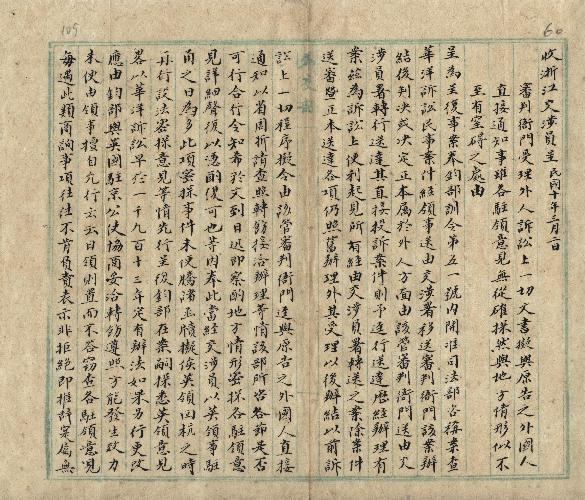 收浙江交涉員呈 民國十年三月二日
審判衙門受理外人訴訟上一切文書擬與原告之外國人
直接通知事雖各駐領意見無從確探然與地方情形似不
至有窒碍之處由
呈為呈復事案奉鈞部訓令第五一號內開准司法部咨稱案查
華洋訴訟民事案件經領事送由交涉署移送審判衙門該案辦
結後判決或決定正本屬於外人方面由該管審判衙門送由交
涉員署轉行送達其直接投訴案件則予逕行送達歷經辦理有
案茲為訴訟上便利起見所有經由交涉員署轉送之案除案件
送審暨正本送達各項仍照舊辦理外其受理以後辦結以前訴
訟上一切程序擬令由該管審判衙門逕與原告之外國人直接
通知以省周折請查照轉飭接洽辦理等情該部所咨各節是否
可行合行令知希於文到日迅即察酌地方情形妥探各駐領意
見詳細聲復以憑酌復可也等因奉此當經交涉員以英領事駐
甬之日為多此項密探事件未便騰諸玉牘擬俟英領回杭之時
再行設法密探意見等情先行呈復鈞部在案嗣探悉英領意見
畧以華洋訴訟早於一千九百十三年定有辦法如果另行更改
應由鈞部與英國駐京公使協商妥洽轉飭遵照方能發生效力
未便由領事擅自允行云云日領則置而不答竊查各駐領意見
每遇此類商詢事項往往不肯負責表示非拒絕即推辭案廣無
105
60